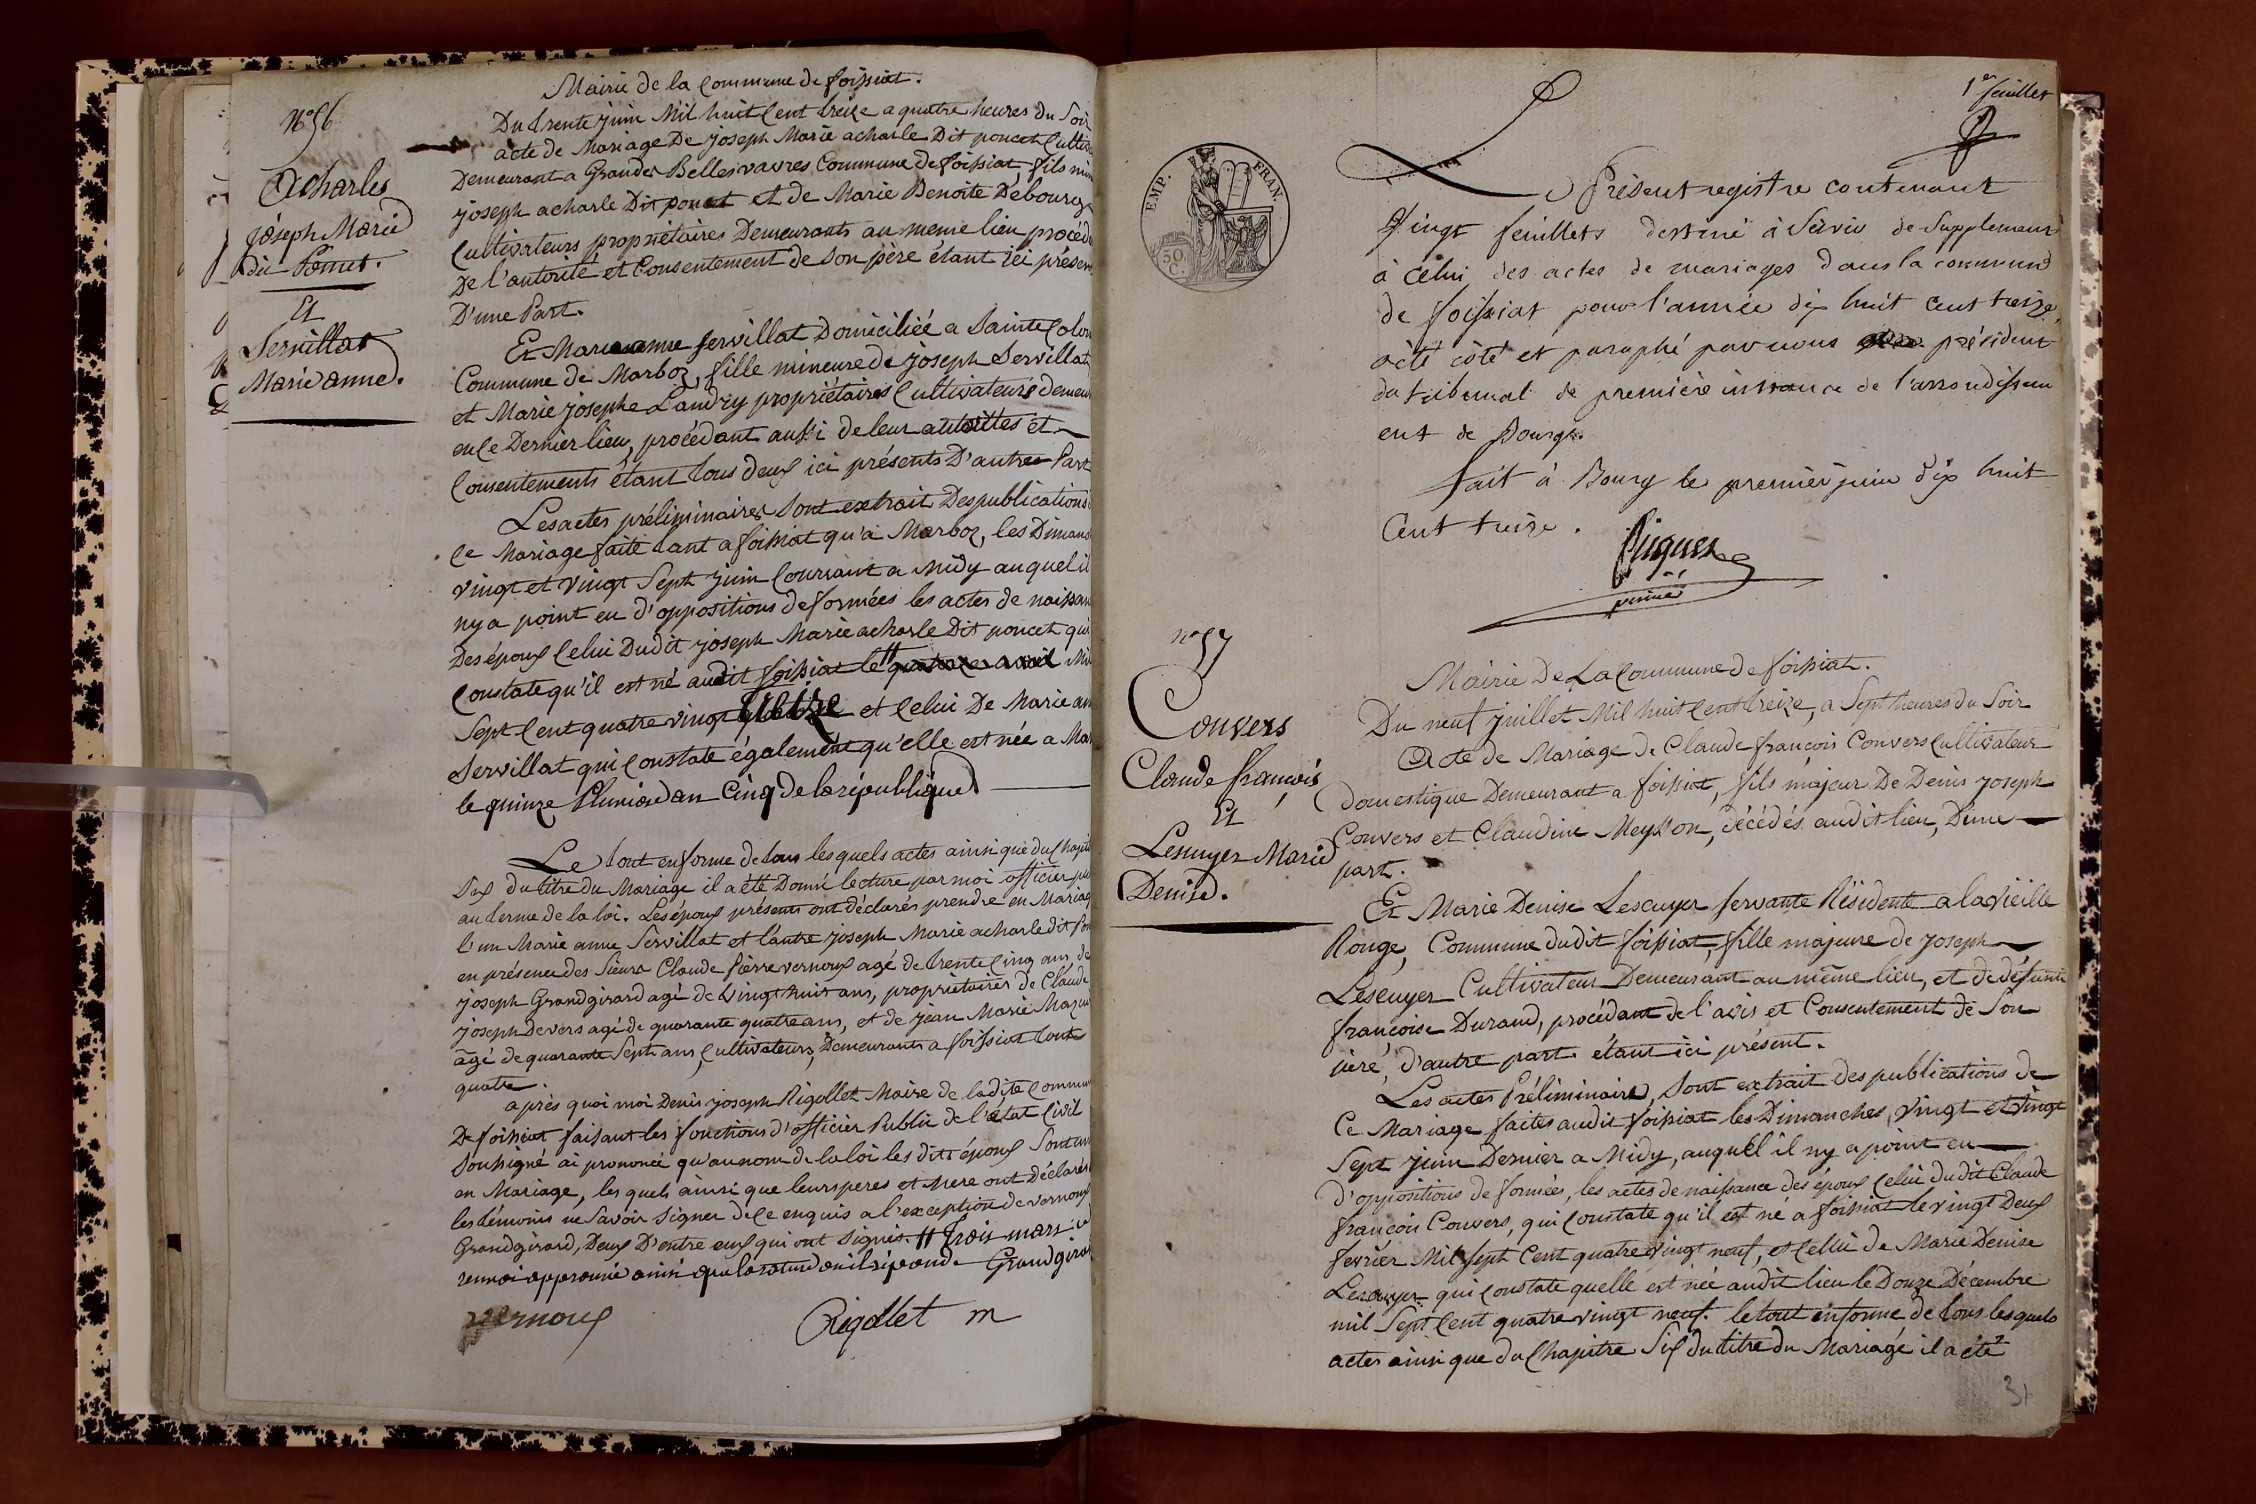 Mairie de la Commune de foissiat.
N° 56
Du trente juin Mil huit Cent treize a quatre heures du Soir
acte de Mariage De joseph Marie acharle Dit poncet Cultiv
Demeurant a Grandes Bellesvavres Commune de foissiat, fils min
joseph acharle Dit poncet et de Marie Benoite Debourg
Cultivateurs propriétaires Demeurants au meme lieu procéda
De l'autorité et Consentement de Son père étant ici présen
D'une Part.
Acharles
joseph Marie
dit Poncet.
Et
Servillat
Marie anne.
Et Marie anne servillat Domiciliée a Sainte Colom
Commune de Marboz, fille mineure de joseph Servillat
et Marie josephe Landry propriétaires Cultivateurs demeu
en Ce Dernier lieu, procédant aussi de leur autorittes et
Consentements étant tous deux ici présents D'autre Part
Les actes préliminaires Sont extrait Des publications
Ce Mariage faite tant a foissiat qu'a Marboz, les Dimanc
vingt et vingt Sept juin Courrant a Midy auquel il
ny a point eu d'oppositions de formées les actes de naissan
Des époux Celui Dudit joseph Marie acharle Dit poncet qui
Constate qu'il est né audit foissiat le quatorze avril Mil
Sept Cent quatre vingt treize et Celui De Marie an
Servillat qui Constate également qu'elle est née a Mar
le quinze Pluviôse an Cinq de la république
Le tout en forme de tous les quels actes ainsi que du Chapit
Six du titre du Mariage il a été Donné lecture par moi officier pu
au terme de la loi. Les époux présents ont déclarés prendre en Mariag
l'un Marie anne Servillat et l'autre joseph Marie acharle dit Pon
en présence des Sieurs Claude Pierre vernoux agé de trente Cinq ans, de
joseph Grandgirard agé de vingt huit ans, propriétaires de Claude
joseph Devers agé de quarante quatre ans, et de jean Marie Mazui
âgé de quarante Sept ans, Cultivateurs, Demeurants a foissiat tout
quatre
après quoi moi Denis joseph Rigollet Maire de la dite Commun
De foissiat faisant les fonctions d'officier Public de l'état Civil
Soussigné ai prononcé qu'au nom de la loi les dits époux Sont un
en Mariage, les quels ainsi que leurs peres et Mere ont Déclarés
les témoins ne Savoir Signer de Ce enquis a l'exception de vernoux
Grandgirard, Deux D'entre eux qui ont Signés. # trois mars
renvoi approuvé ainsi que la rature ou il répond. Grandgirar
vernoux
Rigollet m
1er feuillet
EMP. FRAN.
50 C.
Présent registre contenant
Vingt feuillets destiné à Servir de Supplement
à Celui des actes de mariages dans la commune
de foissiat pour l'année dix huit cent treize,
a été côté et paraphé par nous président
du tribunal de première instance de l'arrondissem
ent de Bourg.
fait à Bourg le premier juin dix huit
Cent treize.
N° 57
Convers
Claude françois
Et
Lescuyer Marie
Denise.
Mairie De La Commune de foissiat.
Du neuf juillet Mil huit Cent treize, a Sept heures du Soir
Acte de Mariage de Claude françois Convers Cultivateur
domestique Demeurant a foissiat, fils majeur De Denis joseph
Convers et Claudine Meysson, décédés audit lieu, D'une
part.
Et Marie Denise Lescuyer servante Résidente a la vieille
Rouge, Commune dudit foissiat, fille majeure de joseph
Lescuyer Cultivateur Demeurant au même lieu, et de défunte
françoise Durand, procédant de l'avis et Consentement de Son
père, d'autre part. étant ici présent.
Les actes Préliminaire, Sont extrait des publications de
Ce Mariage faites audit foissiat les Dimanches, vingt et vingt
Sept juin Dernier a Midy, auquel il ny a point eu
d'oppositions de formées, les actes de naissance des époux Celui du dit Claude
françois Convers, qui Constate qu'il est né a foissiat le vingt Deux
fevrier Mil Sept Cent quatre vingt neuf, et Cellui de Marie Denise
Lescuyer qui Constate quelle est née audit lieu le Douze Décembre
mil Sept Cent quatre vingt neuf. le tout en forme de tous les quels
actes ainsi que du Chapitre Six du titre du Mariage il a été
31